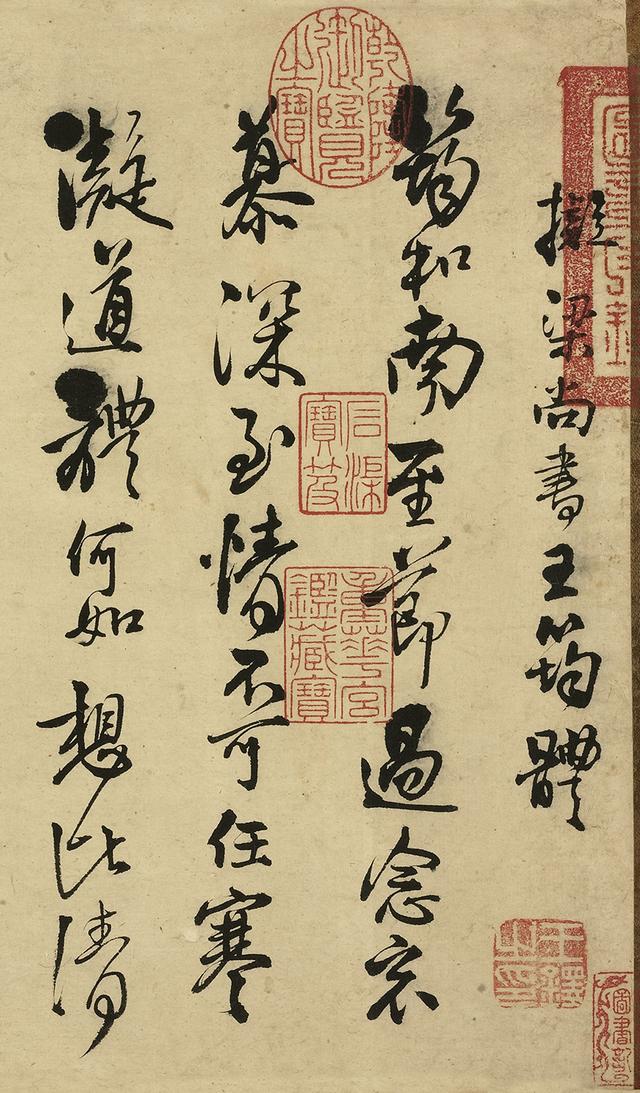 擬梁尚書王筠體
筠和南至節過念哀
慕深至情不可任寒
凝道體何如想比清
乾隆御覽之寶
石渠寶笈
重華宮鑑藏寶
王鐸之印